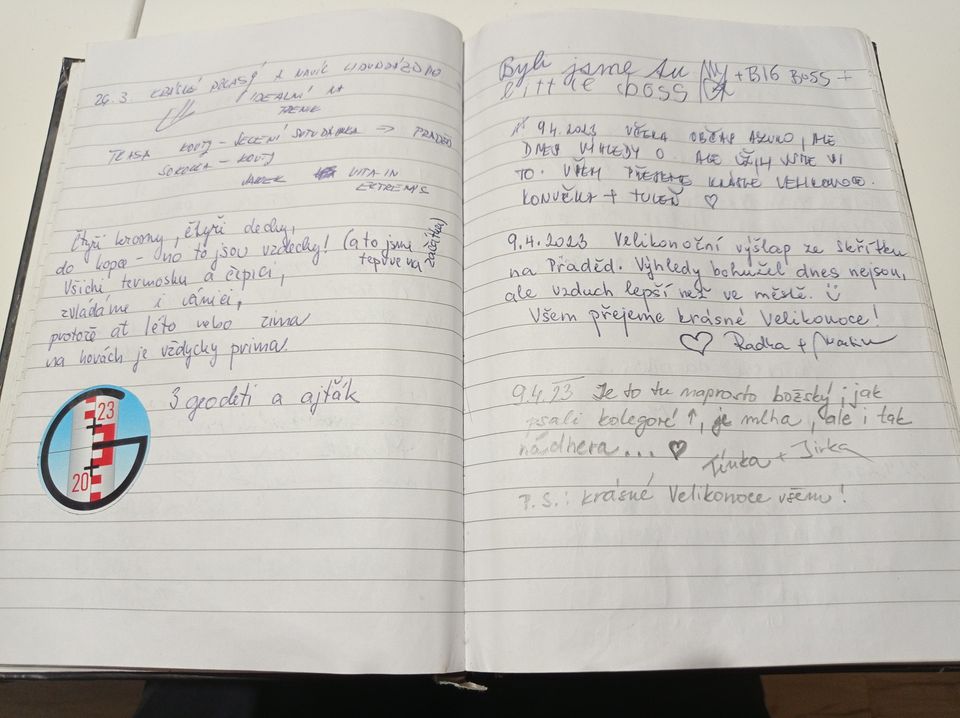 26.3. KRÁSNÝ A NAVÍC
IDEÁLNÍ NA
TRASA KOUTY - VELENÍ STUDÁNKA → PRADĚD
SOKOLKA - KOUTY
JAREK VITA IN
EXTREMIS
Čtyři krosny, čtyři dechy,
do kopce - no to jsou vzdechy! (a to jsme teprve na začátku)
Všichi termosku a čepici,
zvládáme i vánici,
protože ať léto nebo zima
na horách je vždycky prima.
3 geodeti a ajťák
23
20
Byli jsme tu MY + BIG BOSS +
little boss
9.4.2023 VČERA OBČAS AZURO, ALE
DNES VÝHLEDY O. ALE UŽILI JSME SI
TO. VŠEM PŘEJEME KRÁSNÉ VELIKONOCE.
KONVČKA + TULEŇ ♡
9.4.2023 Velikonoční výšlap ze Skřítku
na Praděd. Výhledy bohužel dnes nejsou,
ale vzduch lepší než ve městě. ☺
Všem přejeme krásné Velikonoce!
♡ Radka + Martin
9.4.23 Je to tu naprosto božský, jak
psali kolegové ↑, je mlha, ale i tak
nádhera... ♥ Tinka + Jirka
P.S.: krásné Velikonoce všem!